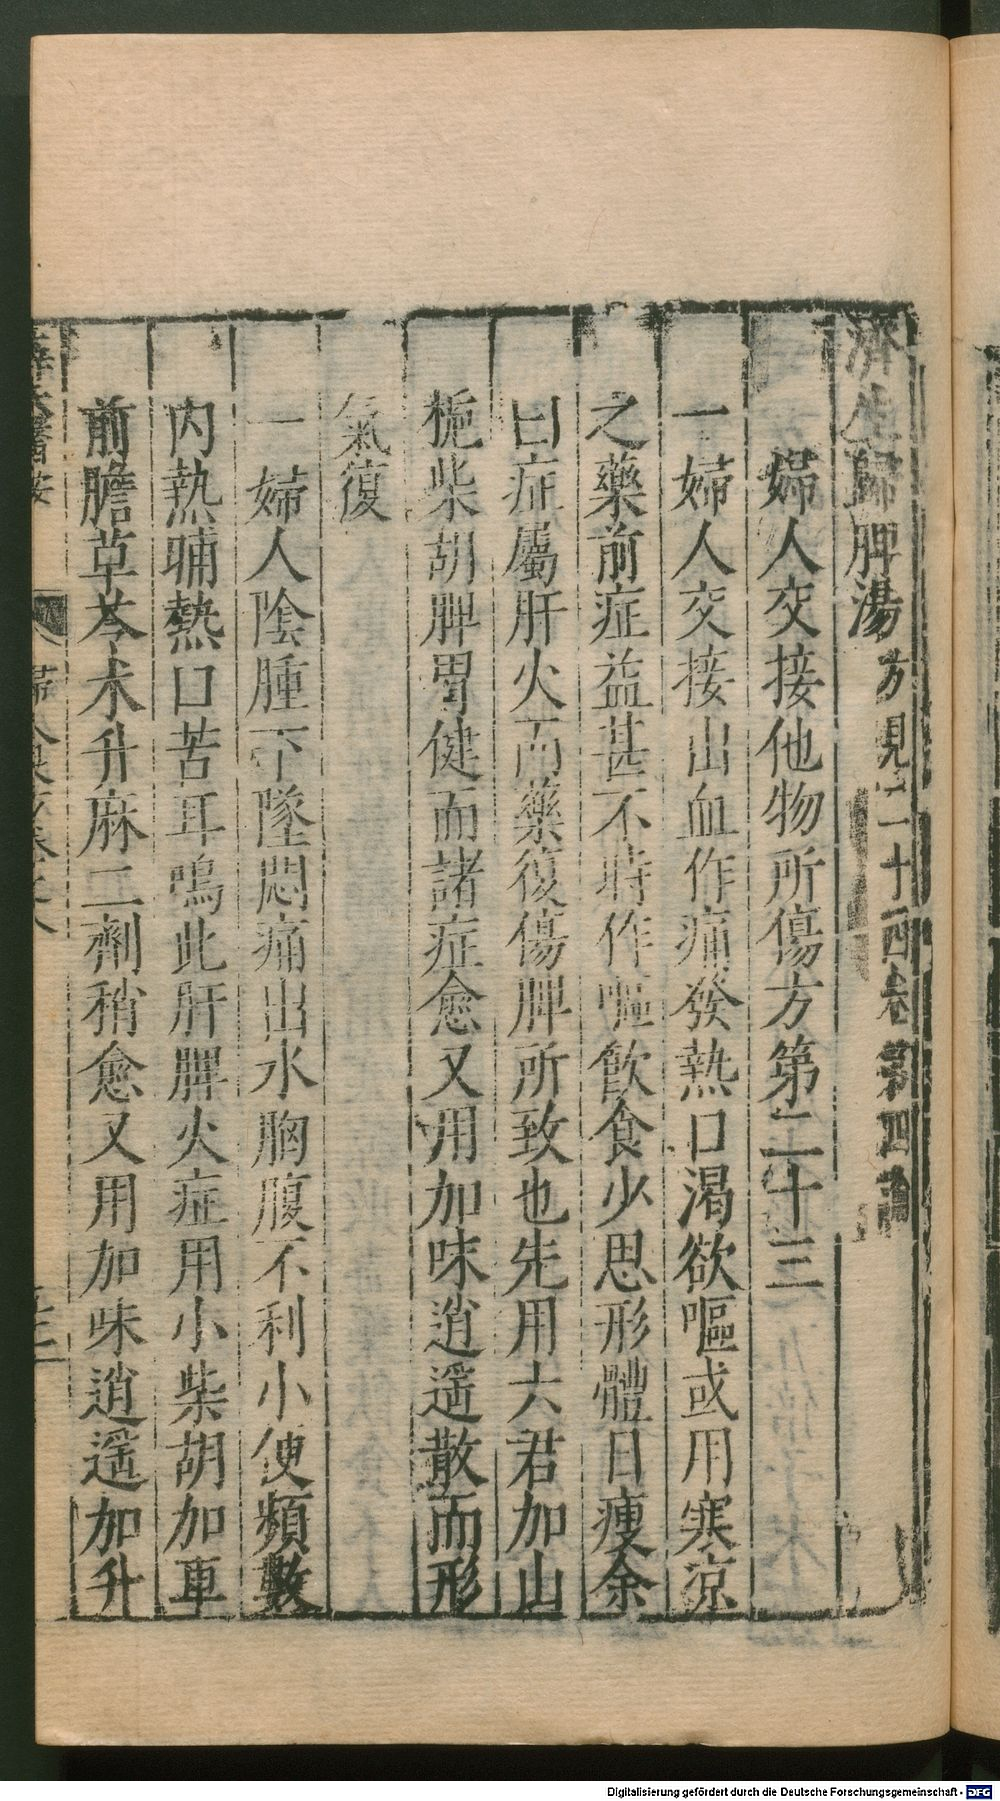 濟生歸脾湯方見二十四卷第四論
婦人交接他物所傷方第二十三
一婦人交接出血作痛發熱口渴欲嘔或用寒涼
之藥前症益甚不時作嘔飲食少思形體日瘦余
曰症屬肝火而藥復傷脾所致也先用六君加山
梔柴胡脾胃健而諸症愈又用加味逍遥散而形
氣復
一婦人陰腫下墜悶痛出水胸腹不利小便頻數
內熱晡熱口苦耳鳴此肝脾火症用小柴胡加車
前膽草苓朮升麻二劑稍愈又用加味逍遥加升
婦人良方卷之八
Digitalisierung gefördert durch die Deutsche Forschungsgemeinschaft - DFG